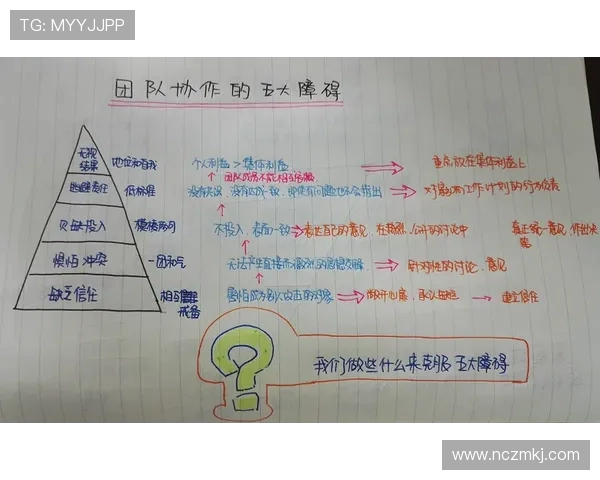 TG: MYYJJPP
团队协作的五大障碍
无视结果 地位和自我 个人利益 > 集体利益 重点放在集体利益上
团队成员不能相互
逃避责任 低标准 没有 没有 一致,即使有问题也不会指出 对 工作计划的 负责
欠缺投入 模棱两可 不投入,表面一致 表达自己的意见,在 公开的讨论中 真正统一意见,作出决策
惧怕冲突 一团和气 无法产生直接而激烈的思想交锋 针对性的讨论、意见
缺乏信任 相互 戒备 害怕成为别人攻击的对象 敞开心扉,承认 建立信任
?
我们做些什么来克服五大障碍
www.nczmkj.com